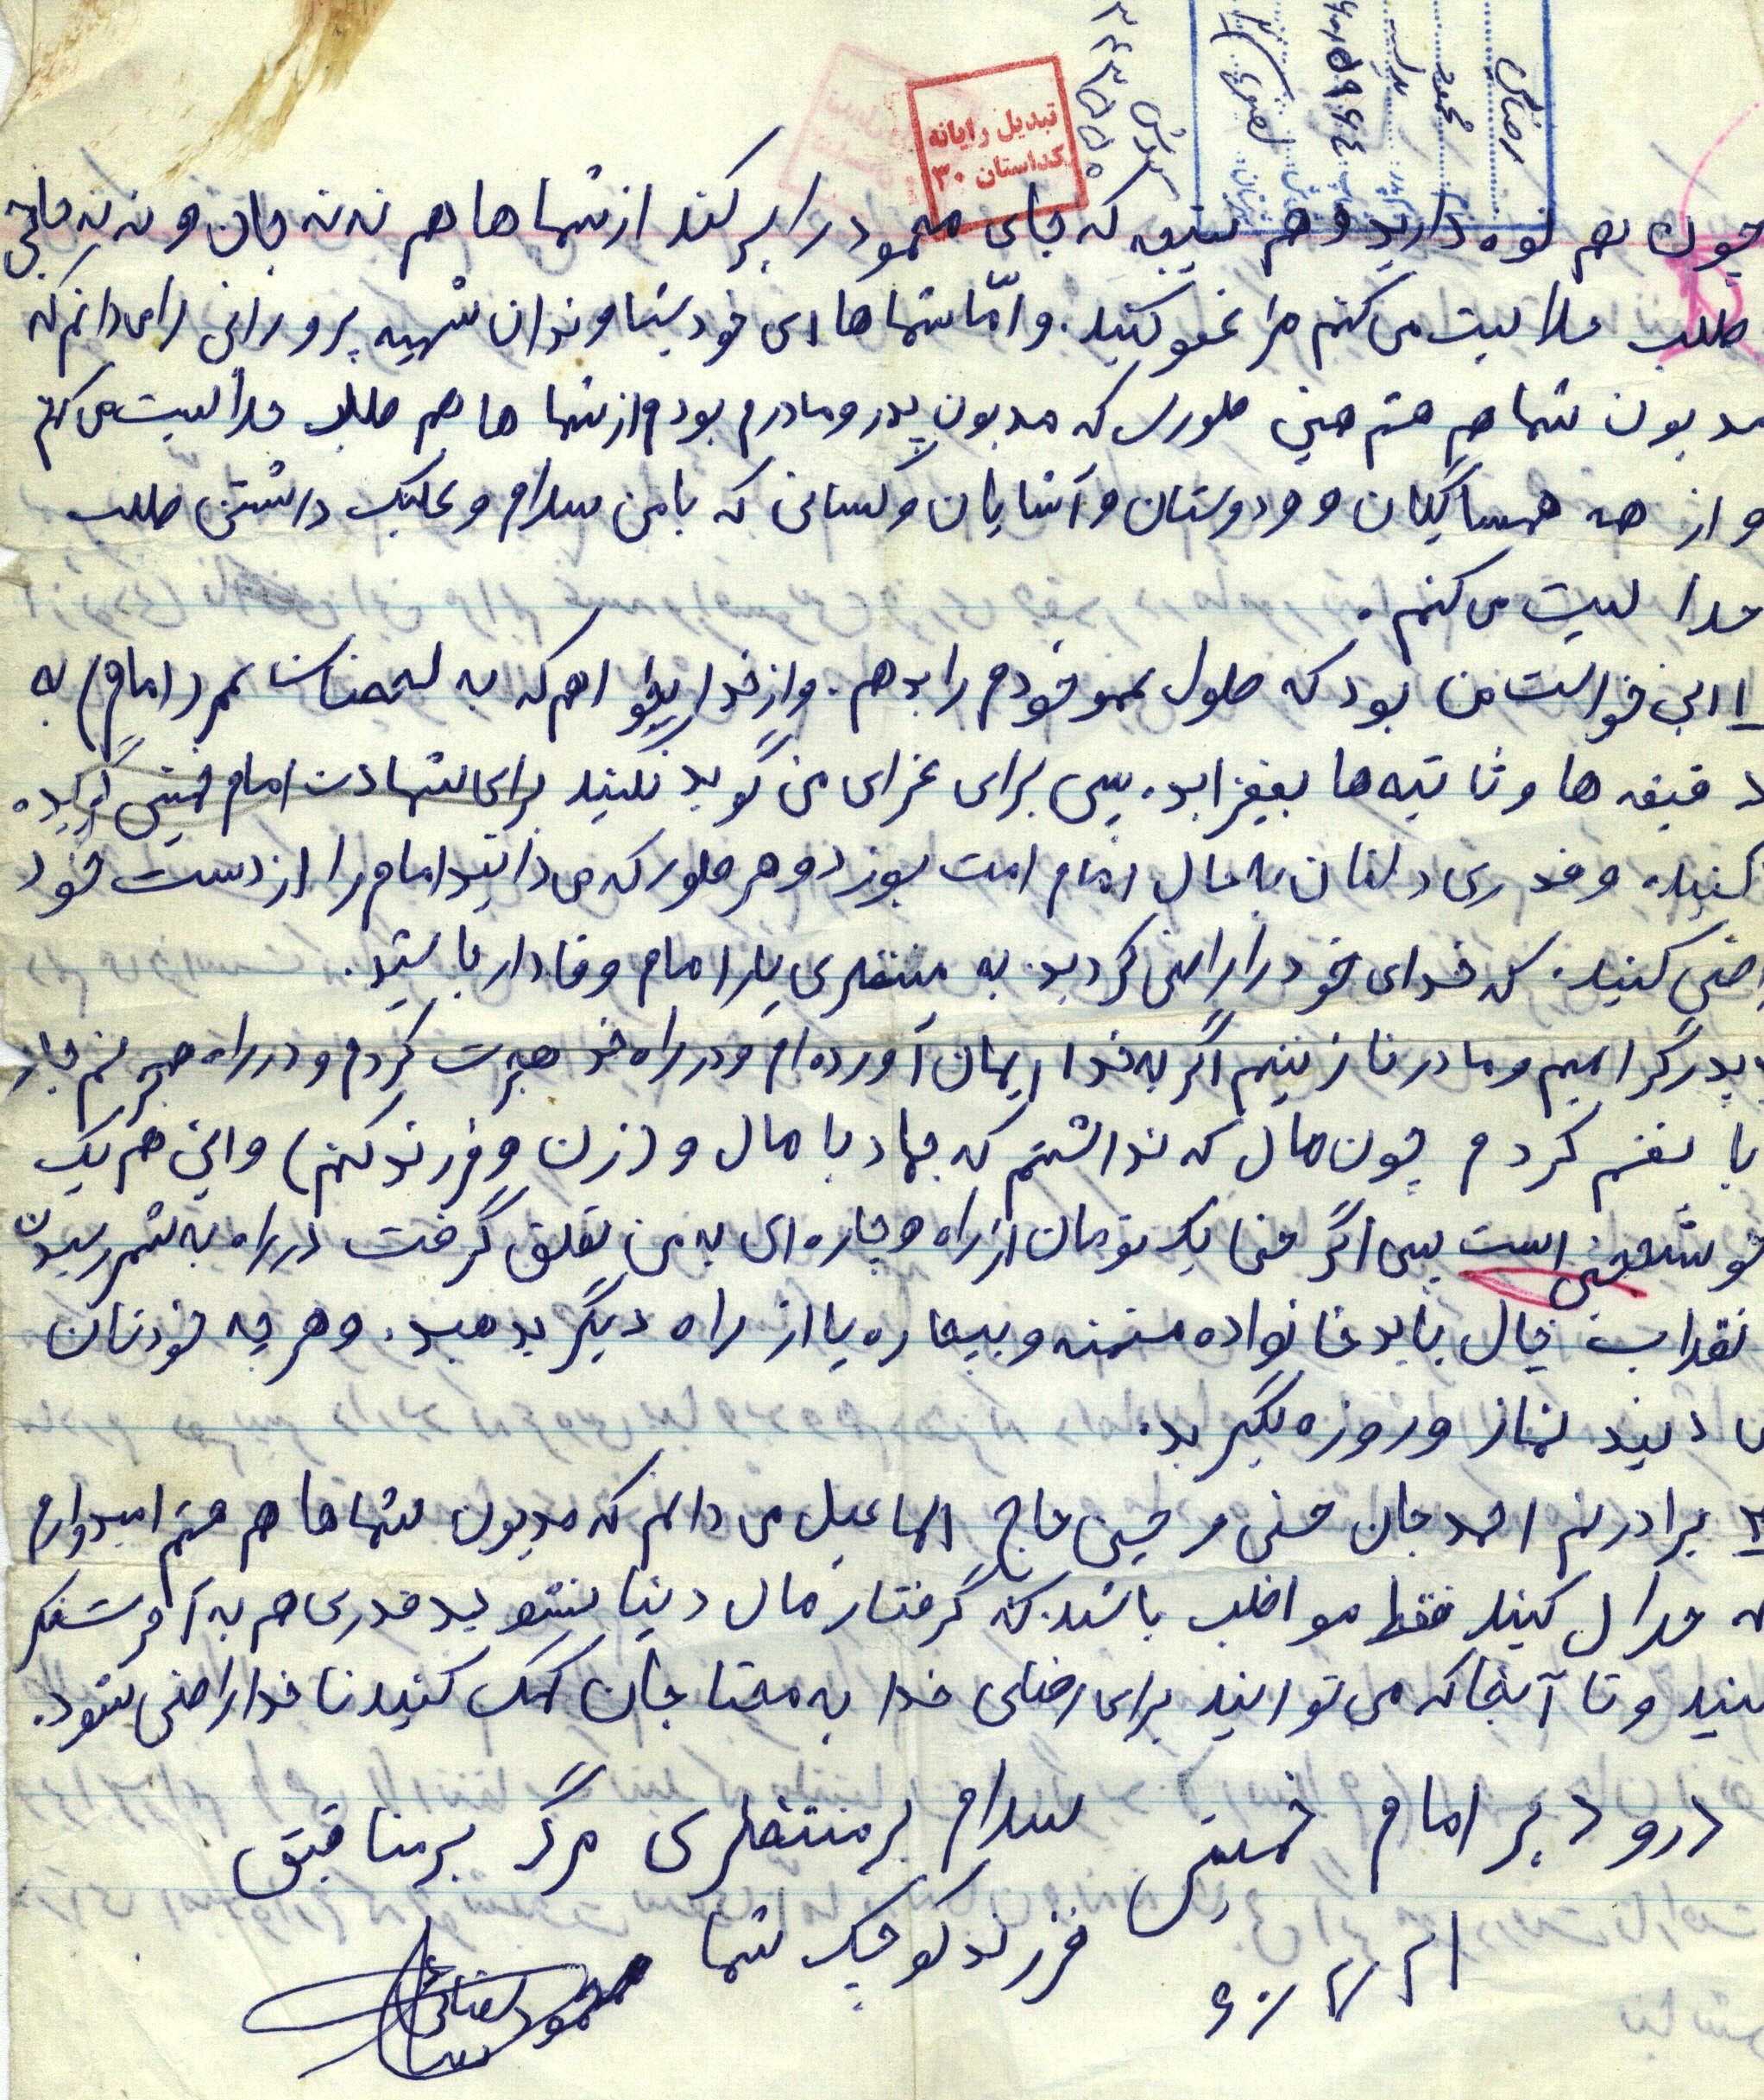 تبدیل رایانه
کداستان ۳۰
رضائی
محمود
چون هم نوه دارید و هم نتیجه که جای محمود را پر کند از شماها هم نه نه جان و نه نه حاجی
طلب حلالیت می کنم مرا عفو کنید. و امّا شماها ای خویشاوندان شهید پرورانی را می دانم که
مدیون شما هم هستم همین طوری که مدیون پدر و مادرم بودم از شما ها هم طلب حلالیت می کنم
و از همه همسایگان و دوستان و آشنایان و کسانی که با من سلام و علیک داشتن طلب
حلالیت می کنم.
این خواست من بود که طول عمر خودم را بدهم. و از خدا بخواهم که به لحضات عمر (امام) به
دقیقه ها و ثانیه ها بیفزاید. پس برای عزای من گریه نکنید برای شهادت امام خمینی گریه
کنید. و قدری دلتان به حال امام امت بسوزد و هر طور که می دانید امام را از دست خود
راضی کنید. که خدای خود را راضی کردید. به منتظری یار امام وفادار باشید.
پدر گرامیم و مادر نازنینم اگر به خدا ایمان آورده ام و در راه خدا هجرت کردم و در راه هجرتم جهاد
با نفسم کردم چون مال که نداشتم که جهاد با مال و (زن و فرزند کنم) و این هم یک
خوشبختی است پس اگر حتی یک تومان از راه و چاره ای به من تعلق گرفت در راه به ثمر رسیدن
انقلاب خیال باید خانواده مستمند و بیچاره یا از راه دیگر بدهید. و هر چه خودتان
می دانید نماز و روزه بگیرید.
برادرنم احمد جان حسنی و حسین حاج اسماعیل می دانم که مدیون شماها هم هستم امیدوارم
که حلال کنید فقط مواظب باشید که گرفتار مال دنیا نشوید قدری هم به آخرت فکر
کنید و تا آنجا که می توانید برای رضای خدا به محتاجان کمک کنید تا خدا راضی شود.
درود بر امام خمینی سلام بر منتظری مرگ بر منافقین
فرزند کوچک شما محمود رضائی
۶۰/۲/۲۱